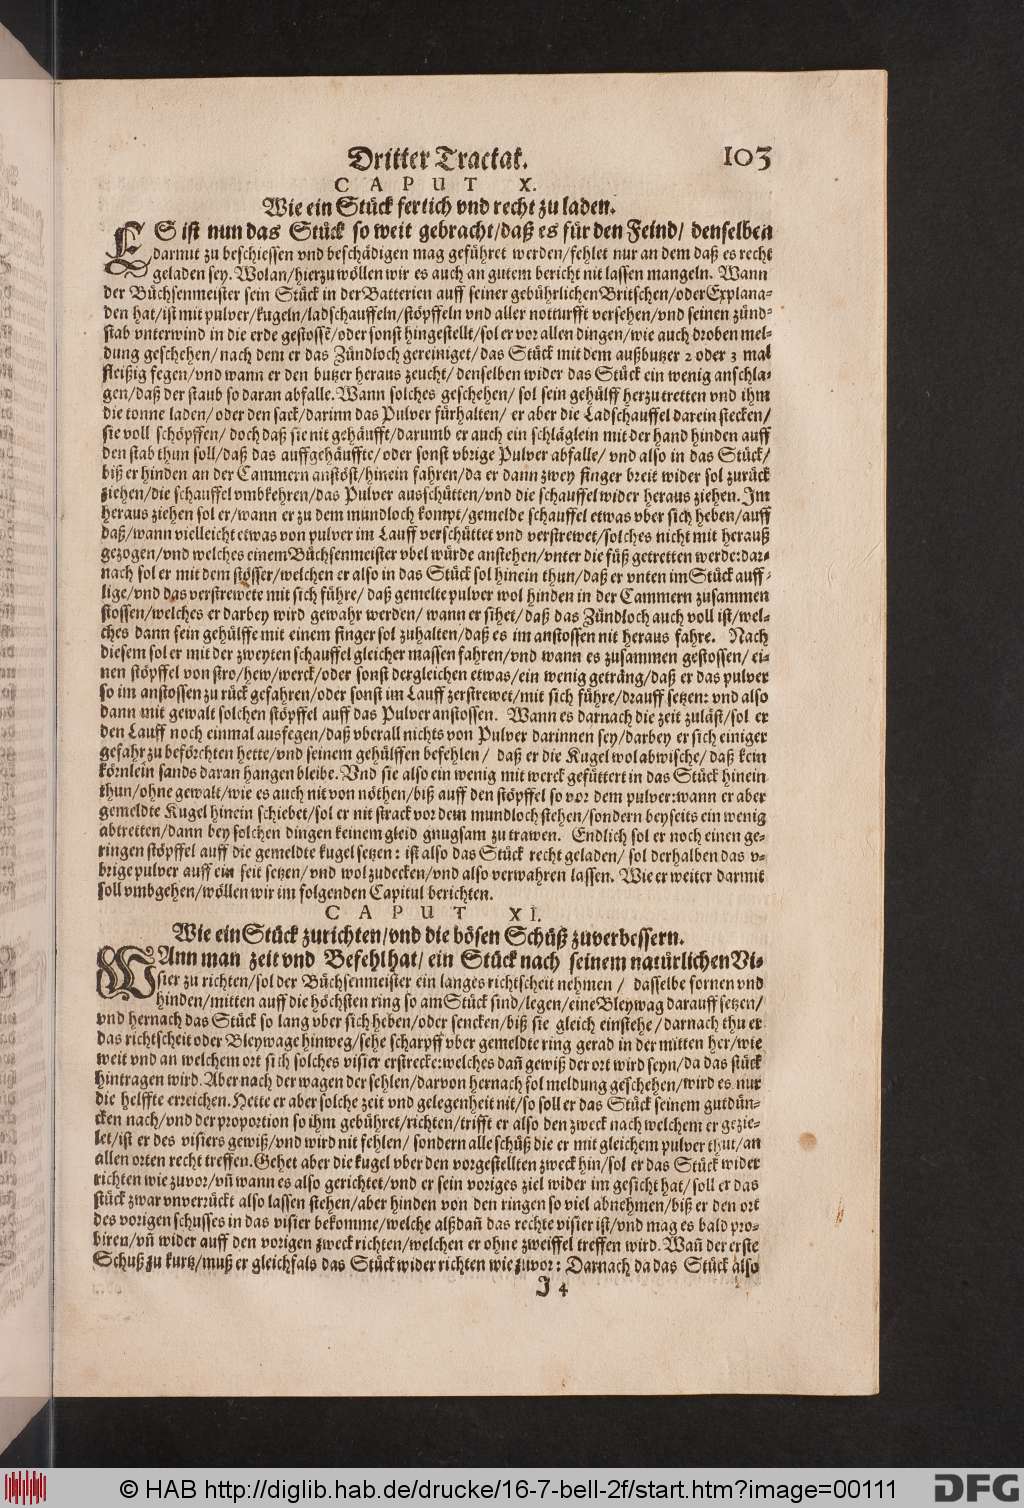 Dritter Tractat. 103
CAPUT X.
Wie ein Stück fertich vnd recht zu laden.
ES ist nun das Stück so weit gebracht/daß es für den Feind/ denselben
darmit zu beschiessen vnd beschädigen mag geführet werden/fehlet nur an dem daß es recht
geladen sey. Wolan/hierzu wöllen wir es auch an gutem bericht nit lassen mangeln. Wann
der Büchsenmeister sein Stück in der Batterien auff seiner gebührlichen Britschen/oder Explana-
den hat/ist mit pulver/kugeln/ladschauffeln/stöpffeln vnd aller notturfft versehen/vnd seinen zünd-
stab vnterwind in die erde gestossẽ/oder sonst hingestellt/sol er vor allen dingen/wie auch droben mel-
dung geschehen/nach dem er das Zündloch gereiniget/das Stück mit dem außbutzer 2 oder 3 mal
fleißig fegen/vnd wann er den butzer heraus zeucht/denselben wider das Stück ein wenig anschla-
gen/daß der staub so daran abfalle. Wann solches geschehen/ sol sein gehülff herzu tretten vnd ihm
die tonne laden/oder den sack/darinn das Pulver fürhalten/ er aber die Ladschauffel darein stecken/
sie voll schöpffen/ doch daß sie nit gehäufft/darumb er auch ein schläglein mit der hand hinden auff
den stab thun soll/daß das auffgehäuffte/oder sonst vbrige Pulver abfalle/ vnd also in das Stück/
biß er hinden an der Cammern anstöst/hinein fahren/da er dann zwey finger breit wider sol zurück
ziehen/die schauffel vmbkehren/das Pulver ausschütten/vnd die schauffel wider heraus ziehen. Im
heraus ziehen sol er/wann er zu dem mundloch kompt/gemelde schauffel etwas vber sich heben/auff
daß/wann vielleicht etwas von pulver im Lauff verschüttet vnd verstrewet/solches nicht mit herauß
gezogen/vnd welches einem Büchsenmeister vbel würde anstehen/vnter die füß getretten werde: dar-
nach sol er mit dem stösser/welchen er also in das Stück sol hinein thun/daß er vnten im Stück auff-
lige/vnd das verstrewete mit sich führe/ daß gemelte pulver wol hinden in der Cammern zusammen
stossen/welches er darbey wird gewahr werden/ wann er sihet/ daß das Zündloch auch voll ist/wel-
ches dann sein gehülffe mit einem finger sol zuhalten/daß es im anstossen nit heraus fahre. Nach
diesem sol er mit der zweyten schauffel gleicher massen fahren/vnd wann es zusammen gestossen/ ei-
nen stöpffel von stro/hew/werck/oder sonst dergleichen etwas/ein wenig geträng/daß er das pulver
so im anstossen zu rück gefahren/oder sonst im Lauff zerstrewet/mit sich führe/drauff setzen: vnd also
dann mit gewalt solchen stöpffel auff das Pulver anstossen. Wann es darnach die zeit zuläst/sol er
den Lauff noch einmal ausfegen/daß vberall nichts von Pulver darinnen sey/darbey er sich einiger
gefahr zu beförchten hette/vnd seinem gehülffen befehlen/ daß er die Kugel wol abwische/daß kein
körnlein sands daran hangen bleibe. Vnd sie also ein wenig mit werck gefüttert in das Stück hinein
thun/ohne gewalt/wie es auch nit von nöthen/biß auff den stöpffel so vor dem pulver: wann er aber
gemeldte Kugel hinein schiebet/sol er nit strack vor dem mundloch stehen/sondern beyseits ein wenig
abtretten/dann bey solchen dingen keinem gleid gnugsam zu trawen. Endlich sol er noch einen ge-
ringen stöpffel auff die gemeldte kugel setzen: ist also das Stück recht geladen/ sol derhalben das v-
brige pulver auff ein seit setzen/ vnd wol zudecken/vnd also verwahren lassen. Wie er weiter darmit
soll vmbgehen/wöllen wir im folgenden Capitul berichten.
CAPUT XI.
Wie ein Stück zurichten/vnd die bösen Schüß zuverbessern.
WAnn man zeit vnd Befehl hat/ ein Stück nach seinem natürlichen Vi-
sier zu richten/sol der Büchsenmeister ein langes richtscheit nehmen/ dasselbe fornen vnd
hinden/mitten auff die höchsten ring so am Stück sind/legen/eine Bleywag darauff setzen/
vnd hernach das Stück so lang vber sich heben/oder sencken/biß sie gleich einstehe/darnach thu er
das richtscheit oder Bleywage hinweg/sehe scharpff vber gemeldte ring gerad in der mitten her/wie
weit vnd an welchem ort sich solches visier erstrecke: welches dañ gewiß der ort wird seyn/da das stück
hintragen wird. Aber nach der wagen der sehlen/darvon hernach sol meldung geschehen/wird es nur
die helffte erreichen. Hette er aber solche zeit vnd gelegenheit nit/so soll er das Stück seinem gutdün-
cken nach/vnd der proportion so ihm gebühret/richten/trifft er also den zweck nach welchem er gezie-
let/ist er des visiers gewiß/vnd wird nit fehlen/ sondern alle schüß die er mit gleichem pulver thut/an
allen orten recht treffen. Gehet aber die kugel vber den vorgestellten zweck hin/sol er das Stück wider
richten wie zuvor/vñ wann es also gerichtet/vnd er sein voriges ziel wider im gesicht hat/soll er das
stück zwar vnverrückt also lassen stehen/aber hinden von den ringen so viel abnehmen/biß er den ort
des vorigen schusses in das visier bekomme/welche alßdañ das rechte visier ist/vnd mag es bald pro-
biren/vñ wider auff den vorigen zweck richten/welchen er ohne zweiffel treffen wird. Wañ der erste
Schuß zu kurtz/muß er gleichfals das Stück wider richten wie zuvor: Darnach da das Stück also
J 4
© HAB http://diglib.hab.de/drucke/16-7-bell-2f/start.htm?image=00111
DFG